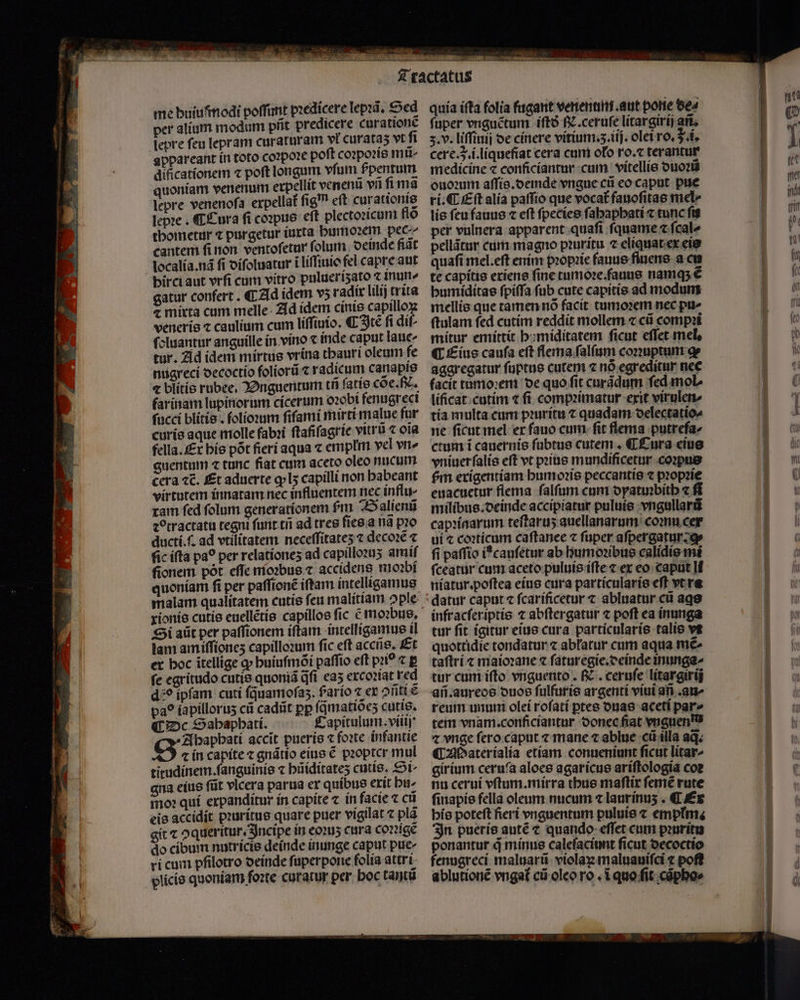 Tractatus
me huiuſmodi poſſunt p̃edicere lep̃ã. Sed
per alium modum pñt predicere curationē
lepre ſeu lepram curaturam vl̓ curataʒ vt ſi
appareant in toto coꝛpoꝛe poſt coꝛpoꝛis mū-
dificationem ⁊ poſt longum vſum ẜpentum
quoniam venenum expellit venenū vñ ſi mã
lepre venenoſa expellat̓ ſigᵐ eſt curationis
lepꝛe . ¶ Cura ſi coꝛpus eſt plectoꝛicum flõ
thometur ⁊ purgetur iuxta humoꝛem pec-
cantem ſi non ventoſetur ſolum deinde fiãt
localia.nã ſi diſoluatur ĩ liſſiuio fel capre aut
hirci aut vrſi cum vitro pulueriʒato ⁊ inun-
gatur confert . ¶ Ad idem vʒ radix lilij trita
⁊ mixta cum melle. Ad idem cinis capilloꝝ
veneris ⁊ caulium cum liſſiuio. ¶ Itē ſi diſ-
ſoluantur anguille in vino ⁊ inde caput laue-
tur. Ad idem mirtus vrina thauri oleum fe
nugreci decoctio folioꝛū ⁊ radicum canapis
⁊ blitis rubee. Vnguentum tñ ſatis cõe.℞.
farinam lupinorum cicerum oꝛobi fenugreci
ſucci blitis . folioꝛum ſiſami mirti malue fur
curis aque molle fabꝛi ſtafiſagrie vitrū ⁊ oĩa
fella. Ex his põt fieri aqua ⁊ emplm̃ vel vn-
guentum ⁊ tunc fiat cum aceto oleo nucum
cera ⁊c̃. Et aduerte ꝙ lʒ capilli non habeant
virtutem innatam nec influentem nec influ-
xam ſed ſolum generationem ẜm Ꝺalienū
⁊ᵒtractatu tegni ſunt tñ ad tres fies a nã pꝛo
ducti.ſ. ad vtilitatem neceſſitateʒ ⁊ decoꝛē ⁊
ſic iſta paᵒ per relationeʒ ad capilloꝛuʒ amiſ
ſionem põt eſſe moꝛbus ⁊ accidens moꝛbi
quoniam ſi per paſſionē iſtam intelligamus
malam qualitatem cutis ſeu malitiam ↄ̃ple
xionis cutis euellētis capillos ſic ē moꝛbus,
Si aūt per paſſionem iſtam intelligamus il
lam amiſſioneʒ capilloꝛum ſic eſt accñs. Et
ex hoc ĩtellige ꝙ huiuſmõi paſſio eſt pꝛiᵒ ⁊ ꝑ
ſe egritudo cutis quoniã q̃ſi eaʒ excoꝛiat red
dᵒ ipſam cuti ſq̃uamoſaʒ. ẜario ⁊ ex ↄñti ē
paᵒ ĩapilloruʒ cū cadūt ꝓp ſq̃matiõeʒ cutis.
¶ De Sahaphati. Capitulum.viiij
SAhaphati accit pueris ⁊ foꝛte infantie
⁊ in capite ⁊ gnãtio eius ē ꝓpter mul
titudinem.ſanguinis ⁊ hũiditateʒ cutis. Si-
gna eius ſūt vlcera parua ex quibus exit hu-
moꝛ qui expanditur in capite ⁊ in facie ⁊ cū
eis accidit pꝛuritus quare puer vigilat ⁊ plã
git ⁊ ↄqueritur. Incipe in eoꝛuʒ cura coꝛrigē
do cibum nutricis deinde inunge caput pue-
ri cum pſilotro deinde ſuperpone folia attri-
plicis quoniam foꝛte curatur per hoc tantū
quia iſta folia fugant venenum .aut pone de-
ſuper vnguētum iſtð ℞.ceruſe litargirij añ.
ʒ.v. liſſinij de cinere vitium.ʒ.iij. olei ro. ℥.i.
cere.℥.i.liquefiat cera cum oľo ro.⁊ terantur
medicine ⁊ conficiantur cum vitellis duoꝛū
ouoꝛum aſſis.deinde vngue cū eo caput pue
ri.¶ Eſt alia paſſio que vocat̓ fauoſitas mel-
lis ſeu fauus ⁊ eſt ſpecies ſahaphati ⁊ tunc fit
per vulnera apparent quaſi ſquame ⁊ ſcal-
pellãtur cum magno pꝛuritu ⁊ eliquat ex eis
quaſi mel.eſt enim pꝛopꝛie fauus fluens a cu
te capitis exiens ſine tumoꝛe.fauus namqʒ ē
humiditas ſpiſſa ſub cute capitis ad modum
mellis que tamen nõ facit tumoꝛem nec pu-
ſtulam ſed cutim reddit mollem ⁊ cū compꝛi
mitur emittit hūmiditatem ſicut eſſet mel,
¶ Eius cauſa eſt flema ſalſum coꝛruptum ꝙ
aggregatur ſuptus cutem ⁊ nõ egreditur nec
facit tumoꝛem de quo ſit curãdum ſed mol-
lificat cutim ⁊ ſi compꝛimatur exit virulen-
tia multa cum pꝛuritu ⁊ quadam delectatio-
ne ſicut mel ex fauo cum ſit flema putrefa-
ctum ĩ cauernis ſubtus cutem . ¶ Cura eius
vniuerſalis eſt vt pꝛius mundificetur coꝛpus
ẜm exigentiam humoꝛis peccantis ⁊ pꝛopꝛie
euacuetur flema ſalſum cum dyatuꝛbith ⁊ ſi
milibus.deinde accipiatur puluis vngularū
capꝛinarum teſtaruʒ auellanarum coꝛnu cer
ui ⁊ coꝛticum caſtanee ⁊ ſuper aſpergatur:ꝙ
ſi paſſio iᵗᵃ cauſetur ab humoꝛibus calidis mi
ſceatur cum aceto puluis iſte ⁊ ex eo caput lĩ
niatur.poſtea eius cura particularis eſt vt ra
datur caput ⁊ ſcarificetur ⁊ abluatur cū aqs
infraſcriptis ⁊ abſtergatur ⁊ poſt ea inunga
tur ſit igitur eius cura particularis talis vt
quottidie tondatur ⁊ ablatur cum aqua mē-
taſtri ⁊ maioꝛane ⁊ ſaturegie.deinde inunga-
tur cum iſto vnguento . ℞ . ceruſe litargirij
añ.aureos duos ſulfuris argenti viui añ .au-
reum unum olei roſati ptes duas aceti par-
tem vnam.conficiantur donec fiat vnguentᵘ
⁊ vnge ſero caput ⁊ mane ⁊ ablue cū illa aq̃.
¶ Materialia etiam conueniunt ſicut litar-
girium ceruſa aloes agaricus ariſtologia coꝛ
nu cerui vſtum.mirra thus maſtix ſemē rute
ſinapis fella oleum nucum ⁊ laurinuʒ . ¶ Ex
his poteſt fieri vnguentum puluis ⁊ emplm̃.
In pueris autē ⁊ quando eſſet cum pꝛuritu
ponantur q̃ minus calefaciunt ſicut decoctio
fenugreci maluarū violaꝝ maluauiſci ⁊ poſt
ablutionē vngat̓ cū oleo ro . ĩ quo ſit cãpho-